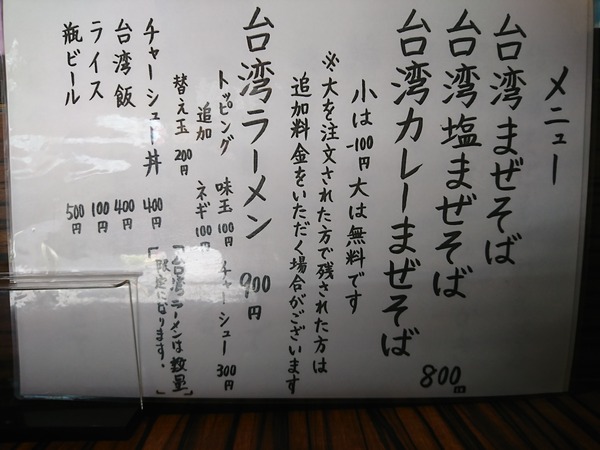 メニュー
台湾まぜそば
台湾塩まぜそば
台湾カレーまぜそば
800円
小は-100円大は無料です
※大を注文された方で残された方は
追加料金をいただく場合がございます
台湾ラーメン 900円
トッピング 味玉100円 チャーシュー300円
追加 ネギ100円
替え玉200円
「台湾ラーメンは数量
限定になります。」
チャーシュー丼 400円
台湾飯 400円
ライス 100円
瓶ビール 500円